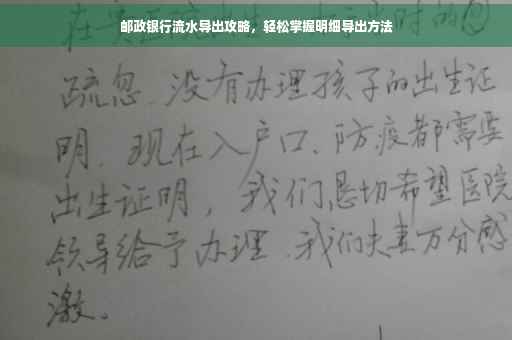 邮政银行流水导出攻略，轻松掌握明细导出方法
疏忽.没有办理孩子的出生证
明.现在入户口、防疫都需要
出生证明，我们恳切希望医院
领导给予办理.我们夫妻万分感
激。